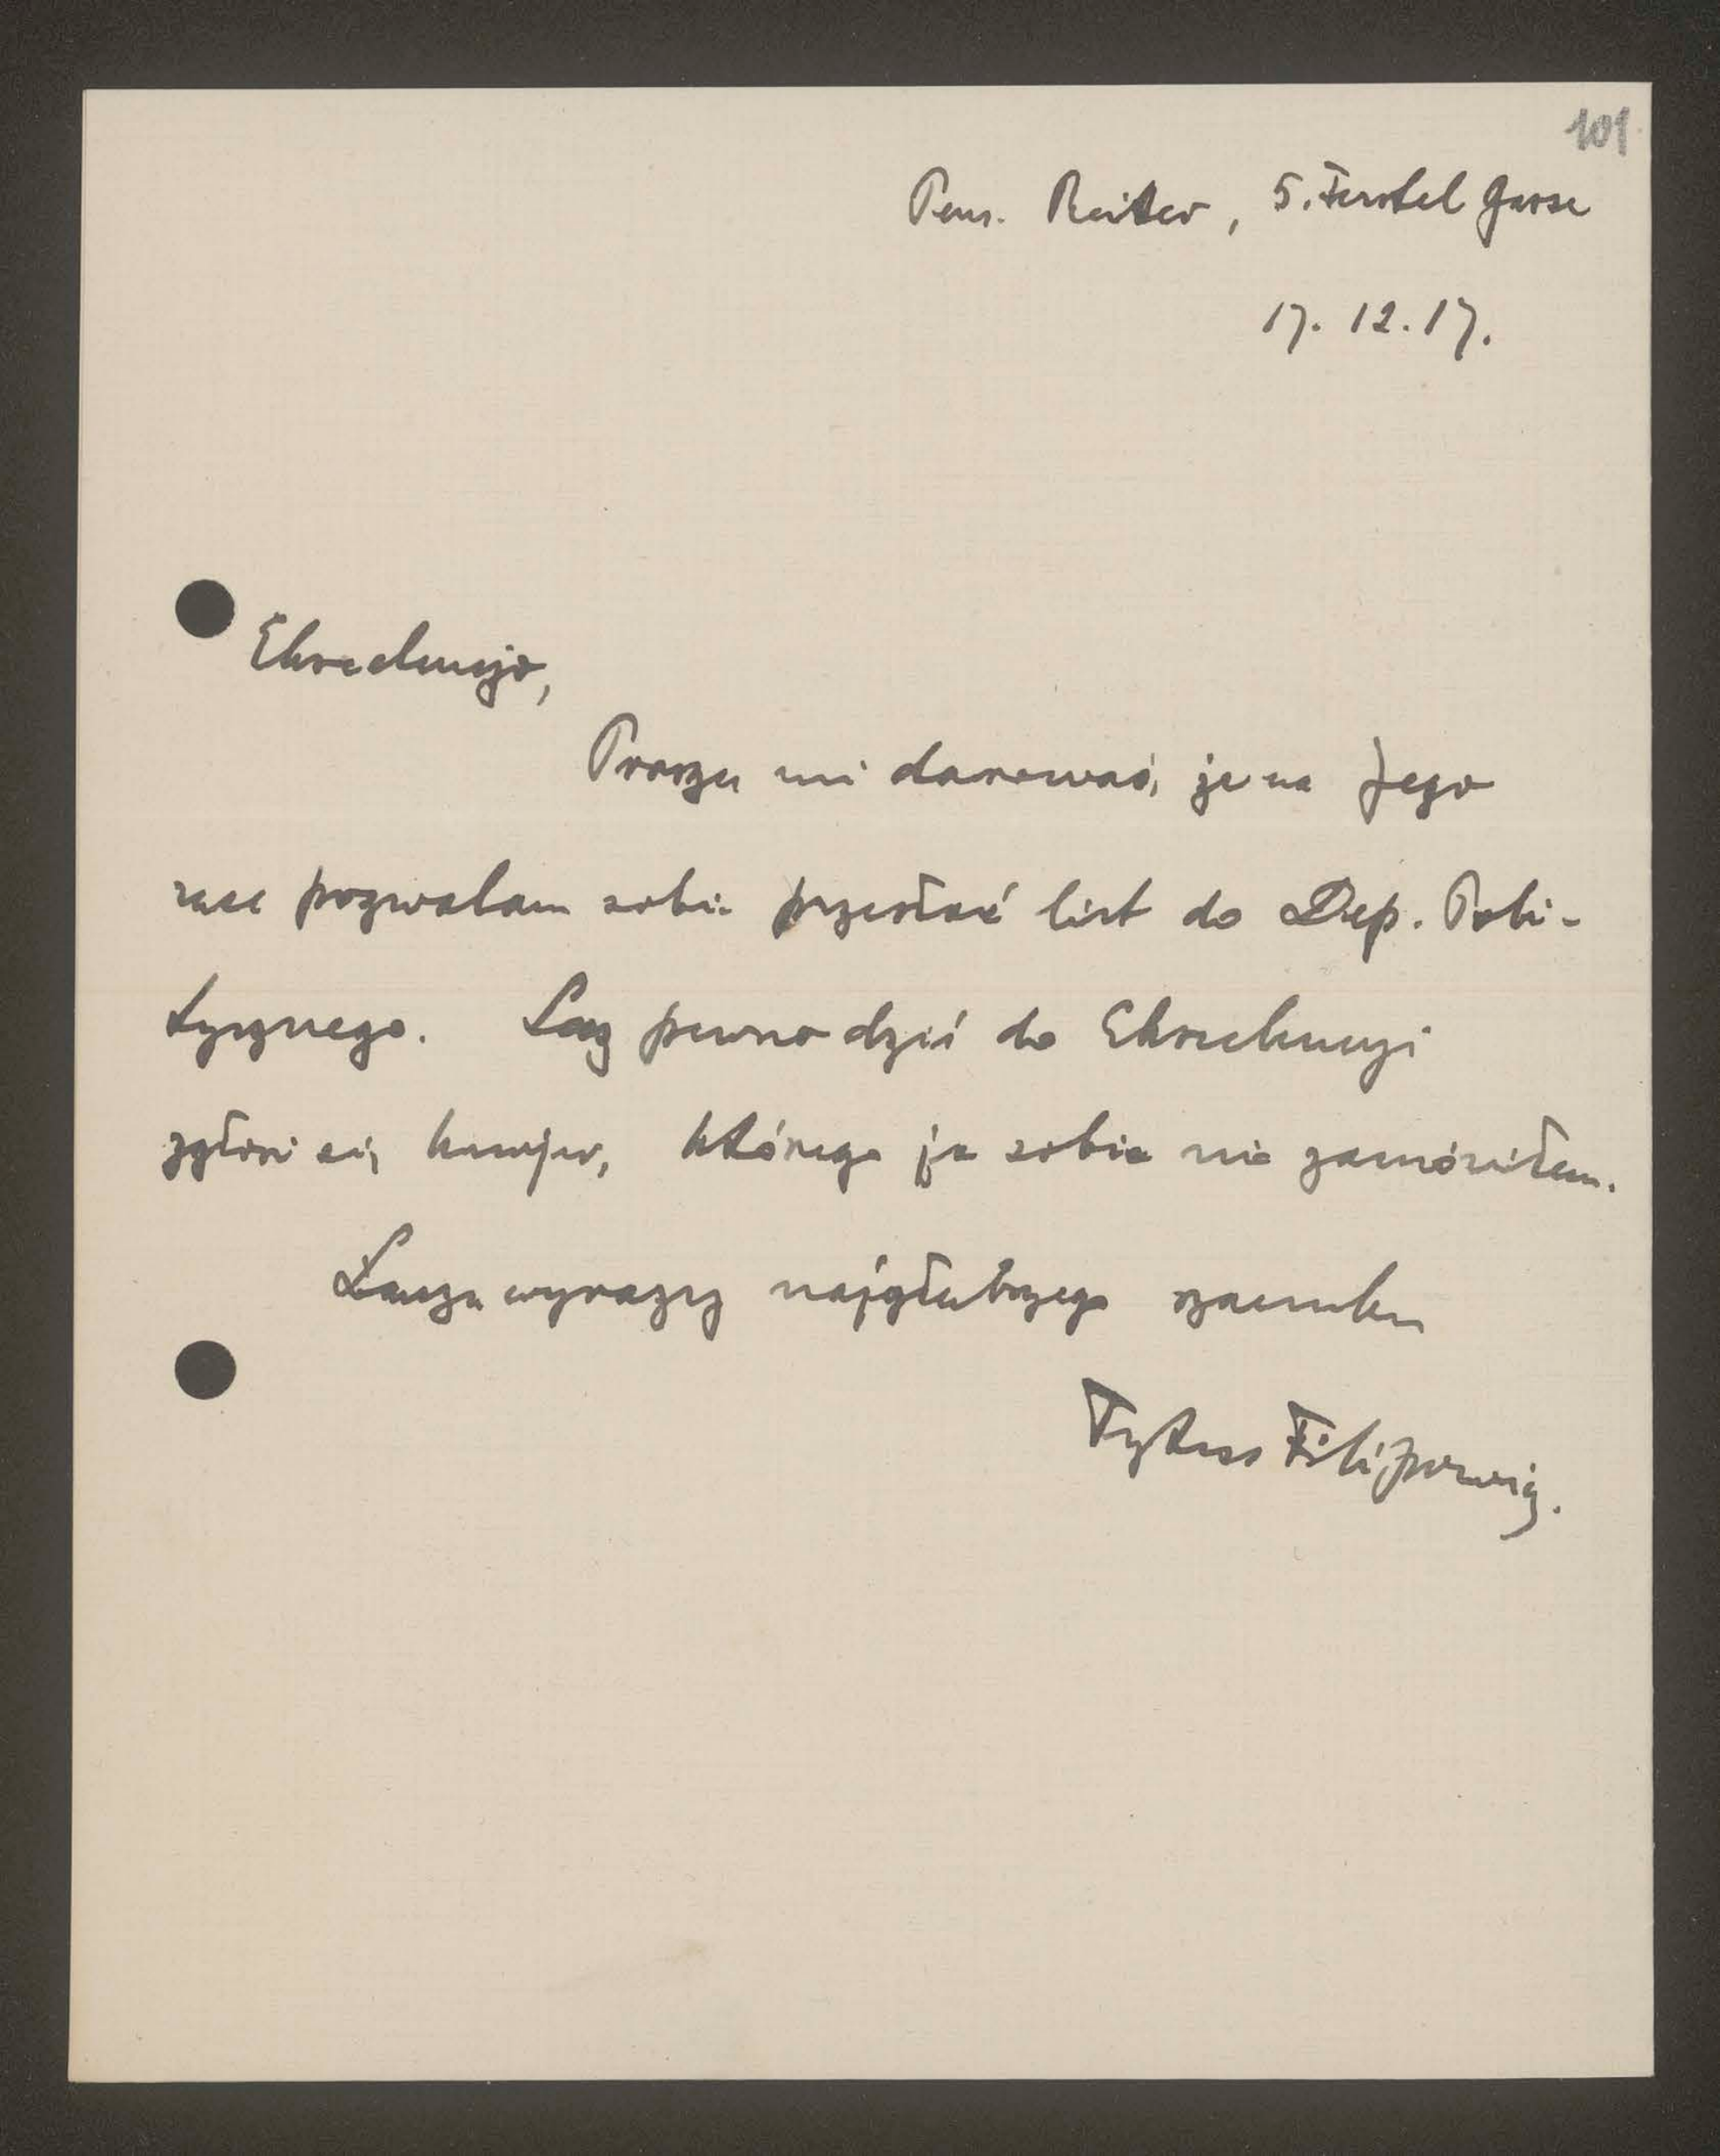 101
Pens. Reiter, 5. Ferstel Gasse
17. 12. 17.
Ekscelencjo,
Proszę mi darować, że na Jego
ręce pozwalam sobie przesłać list do Dep. Poli-
tycznego. Lecz pewno dziś do Ekscelencji
zgłosi się kurjer, którego ja sobie nie zamówiłem.
Łączę wyrazy najgłębszego szacunku
Tytus Filipowicz.